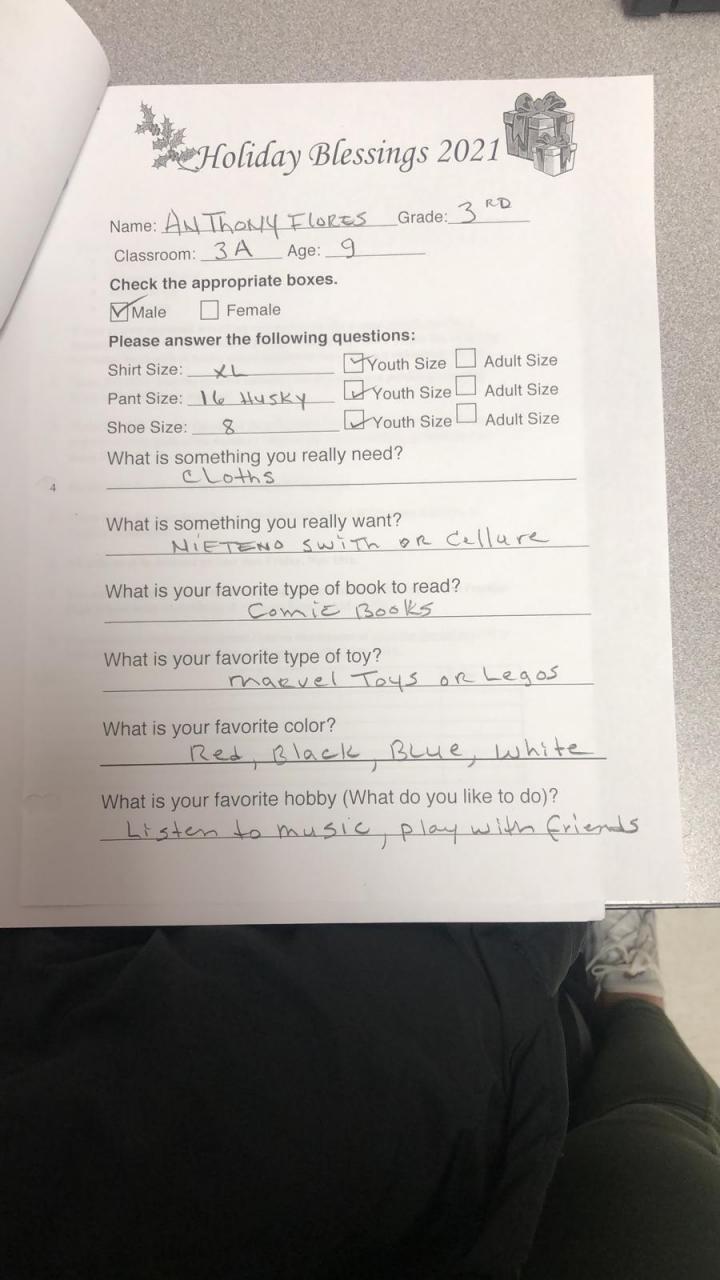 Holiday Blessings 2021
Name: ANThONY FLORES Grade: 3 RD
Classroom: 3A Age: 9
Check the appropriate boxes.
Male Female
Please answer the following questions:
Shirt Size: XL Youth Size Adult Size
Pant Size: 16 Husky Youth Size Adult Size
Shoe Size: 8 Youth Size Adult Size
What is something you really need?
Cloths
4
What is something you really want?
NIETENO SWITh OR Cellure
What is your favorite type of book to read?
Comic Books
What is your favorite type of toy?
Marvel Toys OR Legos
What is your favorite color?
Red, Black, Blue, White
What is your favorite hobby (What do you like to do)?
Listen to music, play with friends